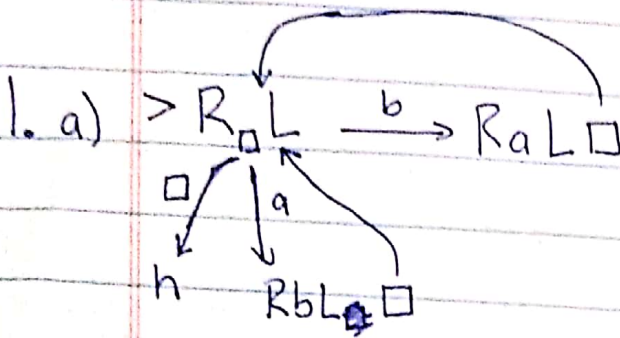 1. a) > R□L b RaL□
□ a
h RbL □